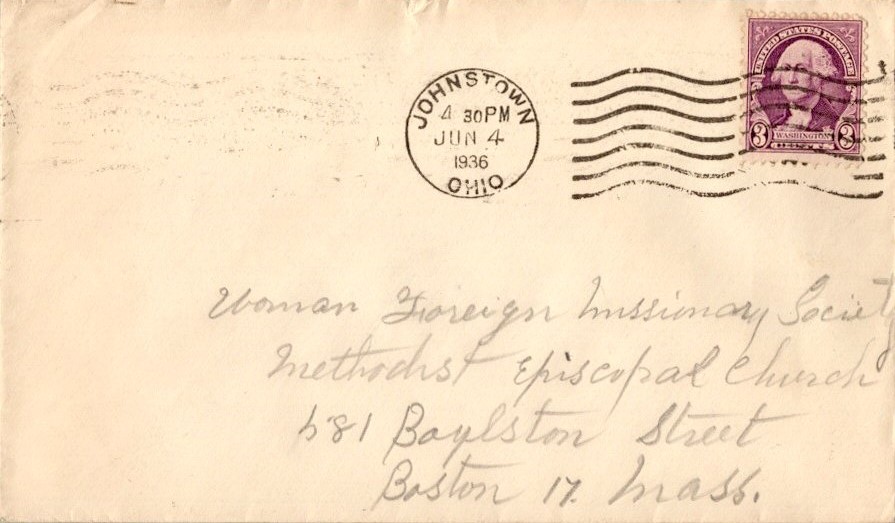 UNITED STATES POSTAGE
3 WASHINGTON 3
CENTS
JOHNSTOWN
4 30 PM
JUN 4
1936
OHIO
Woman Foreign Missionary Society
Methodist Episcopal Church
581 Boylston Street
Boston 17. Mass.